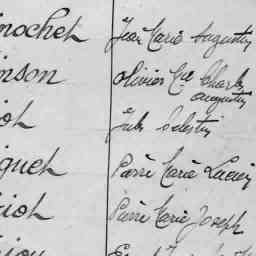 nochet Jean Marie Augustin
nson Olivier Mie Charles
Augustin
iot Jules Célestin
guet Pierre Marie Lucien
riot Pierre Marie Joseph